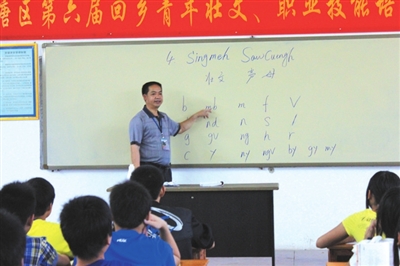 塘区第六届回乡青年壮文、职业技能培
4 Singmeh SawCuengh
壮文 声母
b mb m f v
nd n s l
g gv ng h r
c y ny ngv by gy my